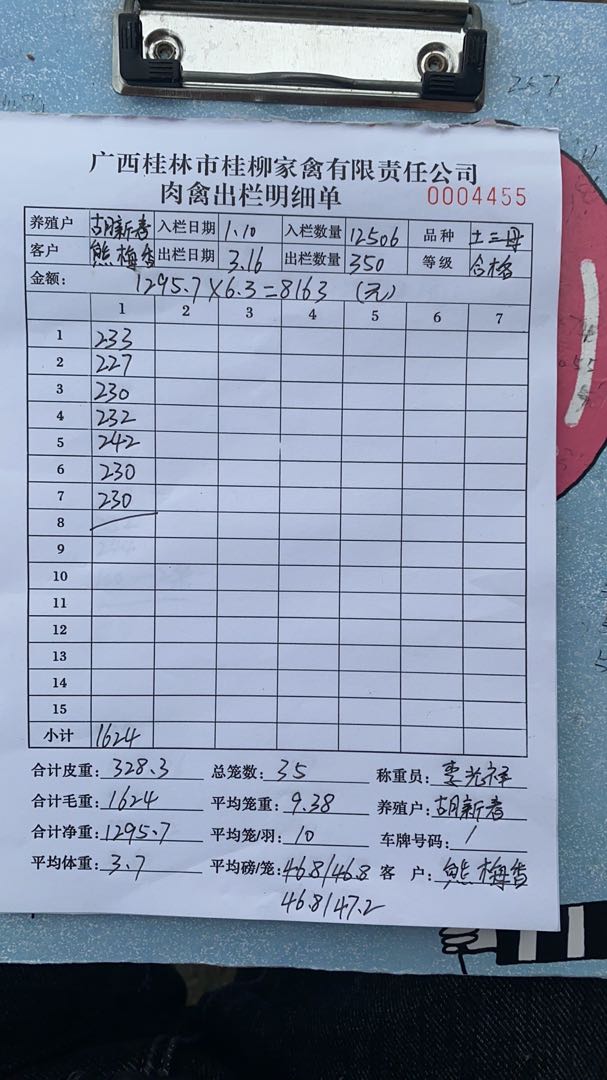 广西桂林市桂柳家禽有限责任公司
肉禽出栏明细单 0004455
养殖户 胡新春 入栏日期 1.10 入栏数量 12506 品种 土三母
客户 熊梅香 出栏日期 3.16 出栏数量 350 等级 合格
金额: 1295.7×6.3=8163 (元)
1 2 3 4 5 6 7
1 233
2 227
3 230
4 232
5 242
6 230
7 230
8
9
10
11
12
13
14
15
小计 1624
合计皮重: 328.3 总笼数: 35 称重员: 李光祥
合计毛重: 1624 平均笼重: 9.38 养殖户: 胡新春
合计净重: 1295.7 平均笼/羽: 10 车牌号码: /
平均体重: 3.7 平均磅/笼: 46.8/46.8 客 户: 熊梅香
46.8/47.2